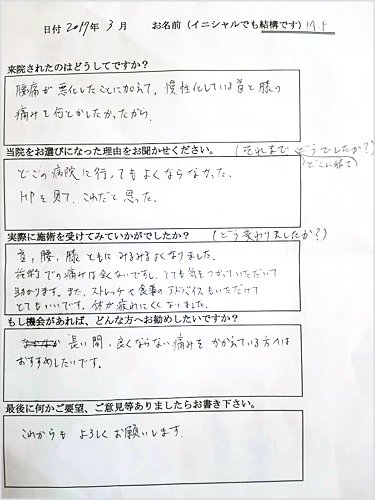 日付 2017年 3月 お名前(イニシャルでも結構です) M.F
来院されたのはどうしてですか?
腰痛が悪化したことに加えて、慢性化している首と膝の
痛みを何とかしたかったから。
当院をお選びになった理由をお聞かせください。(それまでどうでしたか?
(どこに行って)
どこの病院に行ってもよくならなかった。
HPを見て、これだと思った。
実際に施術を受けてみていかがでしたか? (どう変わりましたか?)
首、腰、膝 ともに みるみるよくなりました。
施術での痛みは全くないですし、とても気をつかっていただいて
助かります。また、ストレッチや食事のアドバイスもいただけて
とてもいいです。体が疲れにくくなりました。
もし機会があれば、どんな方へお勧めしたいですか?
長い間、良くならない痛みを かかえている方へは
おすすめしたいです。
最後に何かご要望、ご意見等ありましたらお書き下さい。
これからも よろしくお願いします。